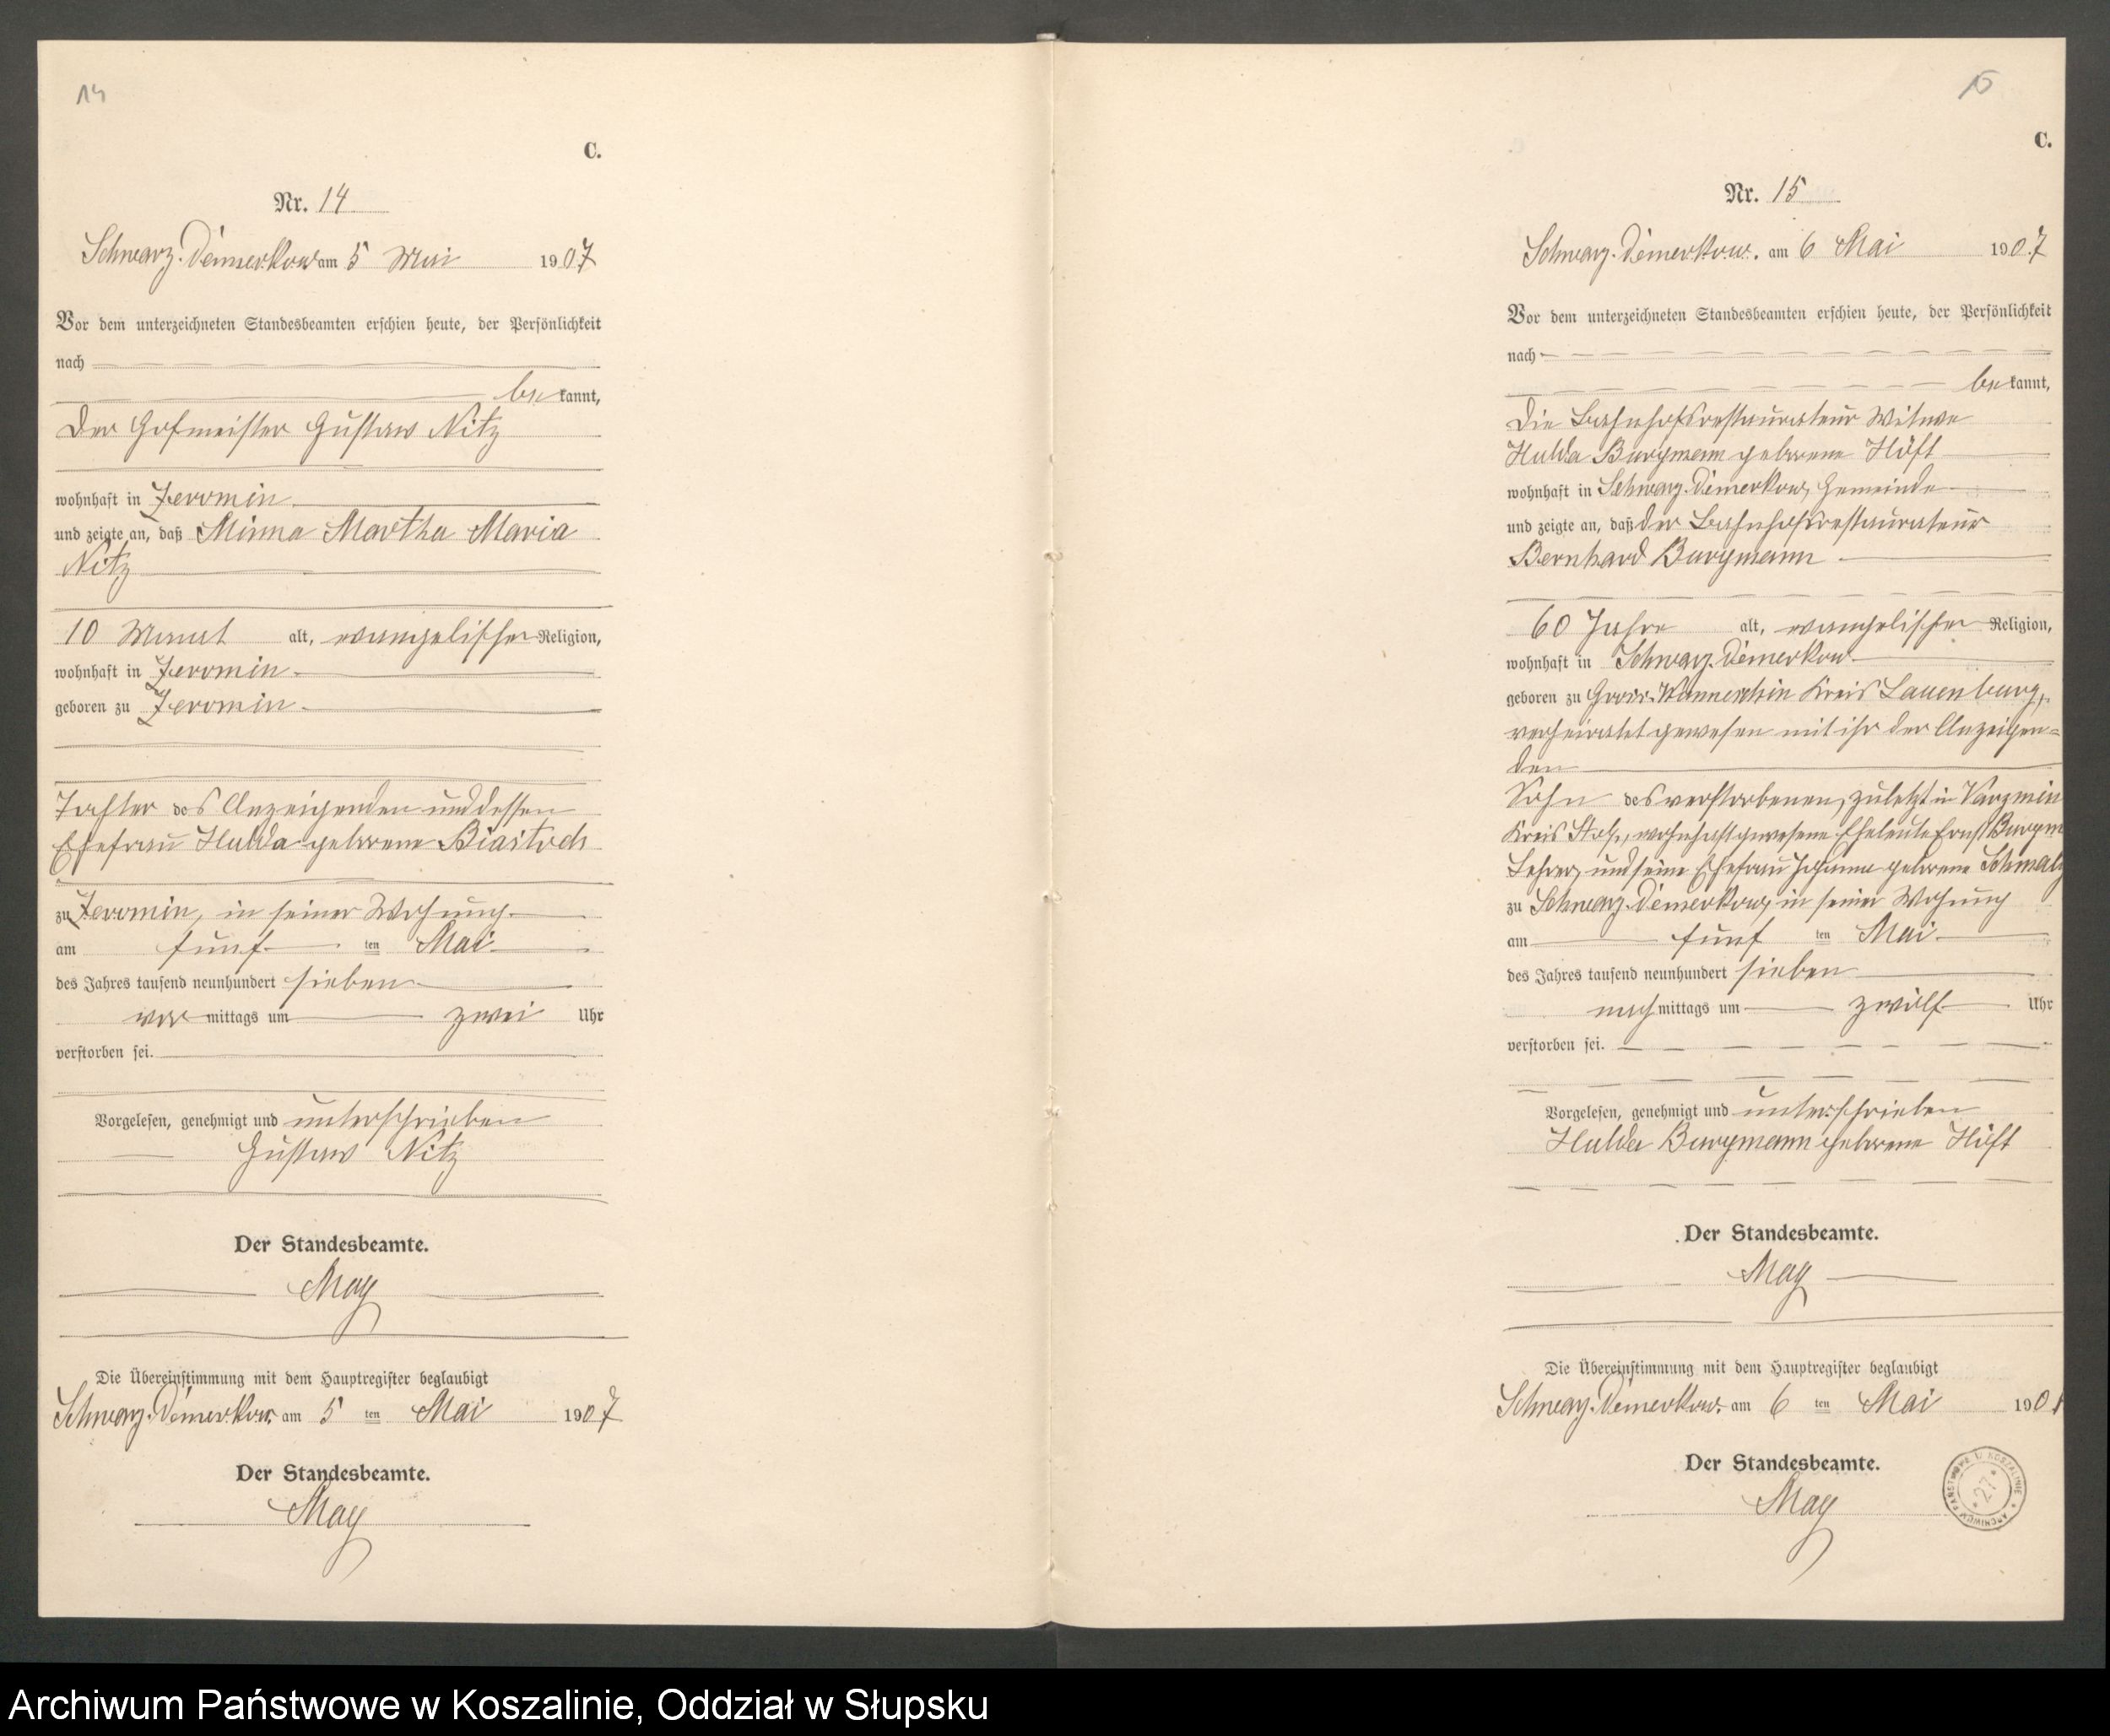 14
C.
Nr. 14
Schwarz-Damerkow am 5 Mai 1907
Vor dem unterzeichneten Standesbeamten erschien heute, der Persönlichkeit
nach
bekannt,
der Hofmeister Gustav Nitz
wohnhaft in Jeromin
und zeigte an, daß Minna Martha Maria
Nitz
10 Monat alt, evangelischer Religion,
wohnhaft in Jeromin
geboren zu Jeromin
Tochter des Anzeigenden und dessen
Ehefrau Hulda geborene Biastoch
zu Jeromin, in seiner Wohnung
am fünf ten Mai
des Jahres tausend neunhundert sieben
vor mittags um zwei Uhr
verstorben sei.
Vorgelesen, genehmigt und unterschrieben
Gustav Nitz
Der Standesbeamte.
May
Die Übereinstimmung mit dem Hauptregister beglaubigt
Schwarz-Damerkow am 5 ten Mai 1907
Der Standesbeamte.
May
15
C.
Nr. 15
Schwarz-Damerkow. am 6 Mai 1907
Vor dem unterzeichneten Standesbeamten erschien heute, der Persönlichkeit
nach
bekannt,
die Bahnhofsrestaurateur Witwe
Hulda Burgmann geborene Höft
wohnhaft in Schwarz-Damerkow, Gemeinde
und zeigte an, daß der Bahnhofsrestaurateur
Bernhard Burgmann
60 Jahre alt, evangelischer Religion,
wohnhaft in Schwarz-Damerkow
geboren zu Gross-Wunneschin Kreis Lauenburg,
verheiratet gewesen mit ihr der Anzeigen=
den
Sohn des verstorbenen, zuletzt in Varzmin
Kreis Stolp, wohnhaft gewesene Eheleute Ernst Burgm
Lehrer, und seine Ehefrau Johanna geborene Schmalz
zu Schwarz-Damerkow, in seiner Wohnung
am fünf ten Mai
des Jahres tausend neunhundert sieben
nach mittags um zwölf Uhr
verstorben sei.
Vorgelesen, genehmigt und unterschrieben
Hulda Burgmann geborene Höft
Der Standesbeamte.
May
Die Übereinstimmung mit dem Hauptregister beglaubigt
Schwarz-Damerkow. am 6 ten Mai 190
Der Standesbeamte.
May
ARCHIWUM PAŃSTWOWE W KOSZALINIE
27
Archiwum Państwowe w Koszalinie, Oddział w Słupsku